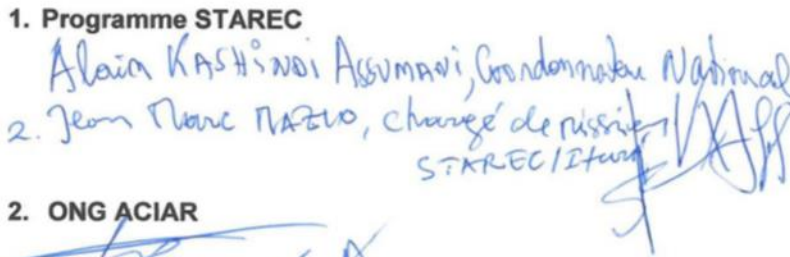 1. Programme STAREC
Alain KASHINDI ASSUMANI, Coordonnateur National
2. Jean Marc MAZIO, chargé de mission
STAREC/Ituri
2. ONG ACIAR